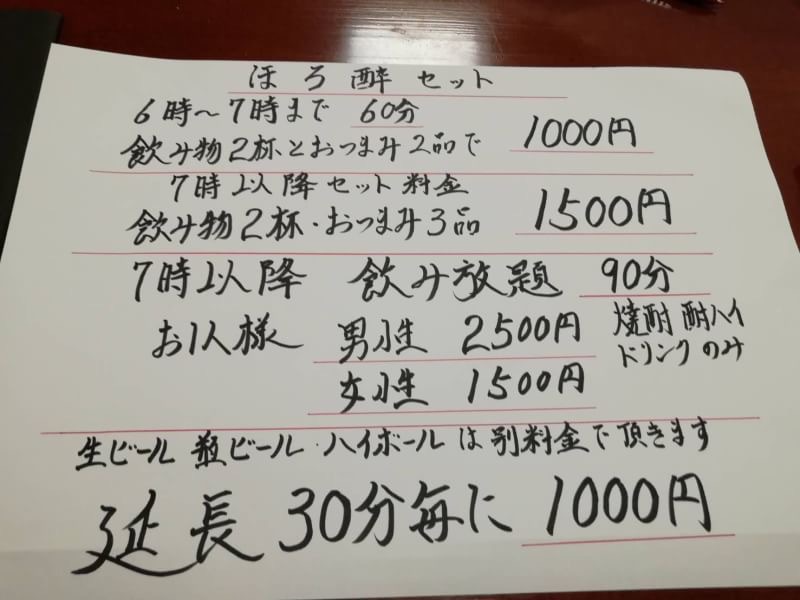 ほろ酔セット
6時〜7時まで 60分
飲み物2杯とおつまみ2品で 1000円
7時以降セット料金
飲み物2杯・おつまみ3品 1500円
7時以降 飲み放題 90分
お1人様 男性 2500円
女性 1500円
焼酎 酎ハイ
ドリンクのみ
生ビール 瓶ビール・ハイボールは別料金で頂きます
延長 30分毎に 1000円